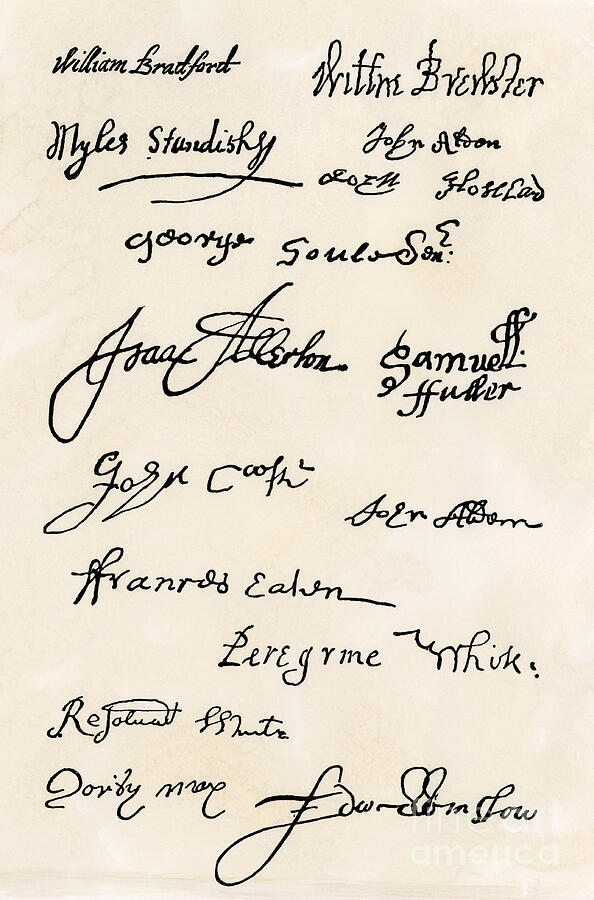 William Bradford
Willm Brewster
Myles Standish
John Alden
John Howland
George Soule Sen:
Isaac Allerton.
Samuell
ffuller
John Cooke
John Alden
ffrancis Eaton
Peregrine White.
Resolued White
Edw Winslow
fine art
america